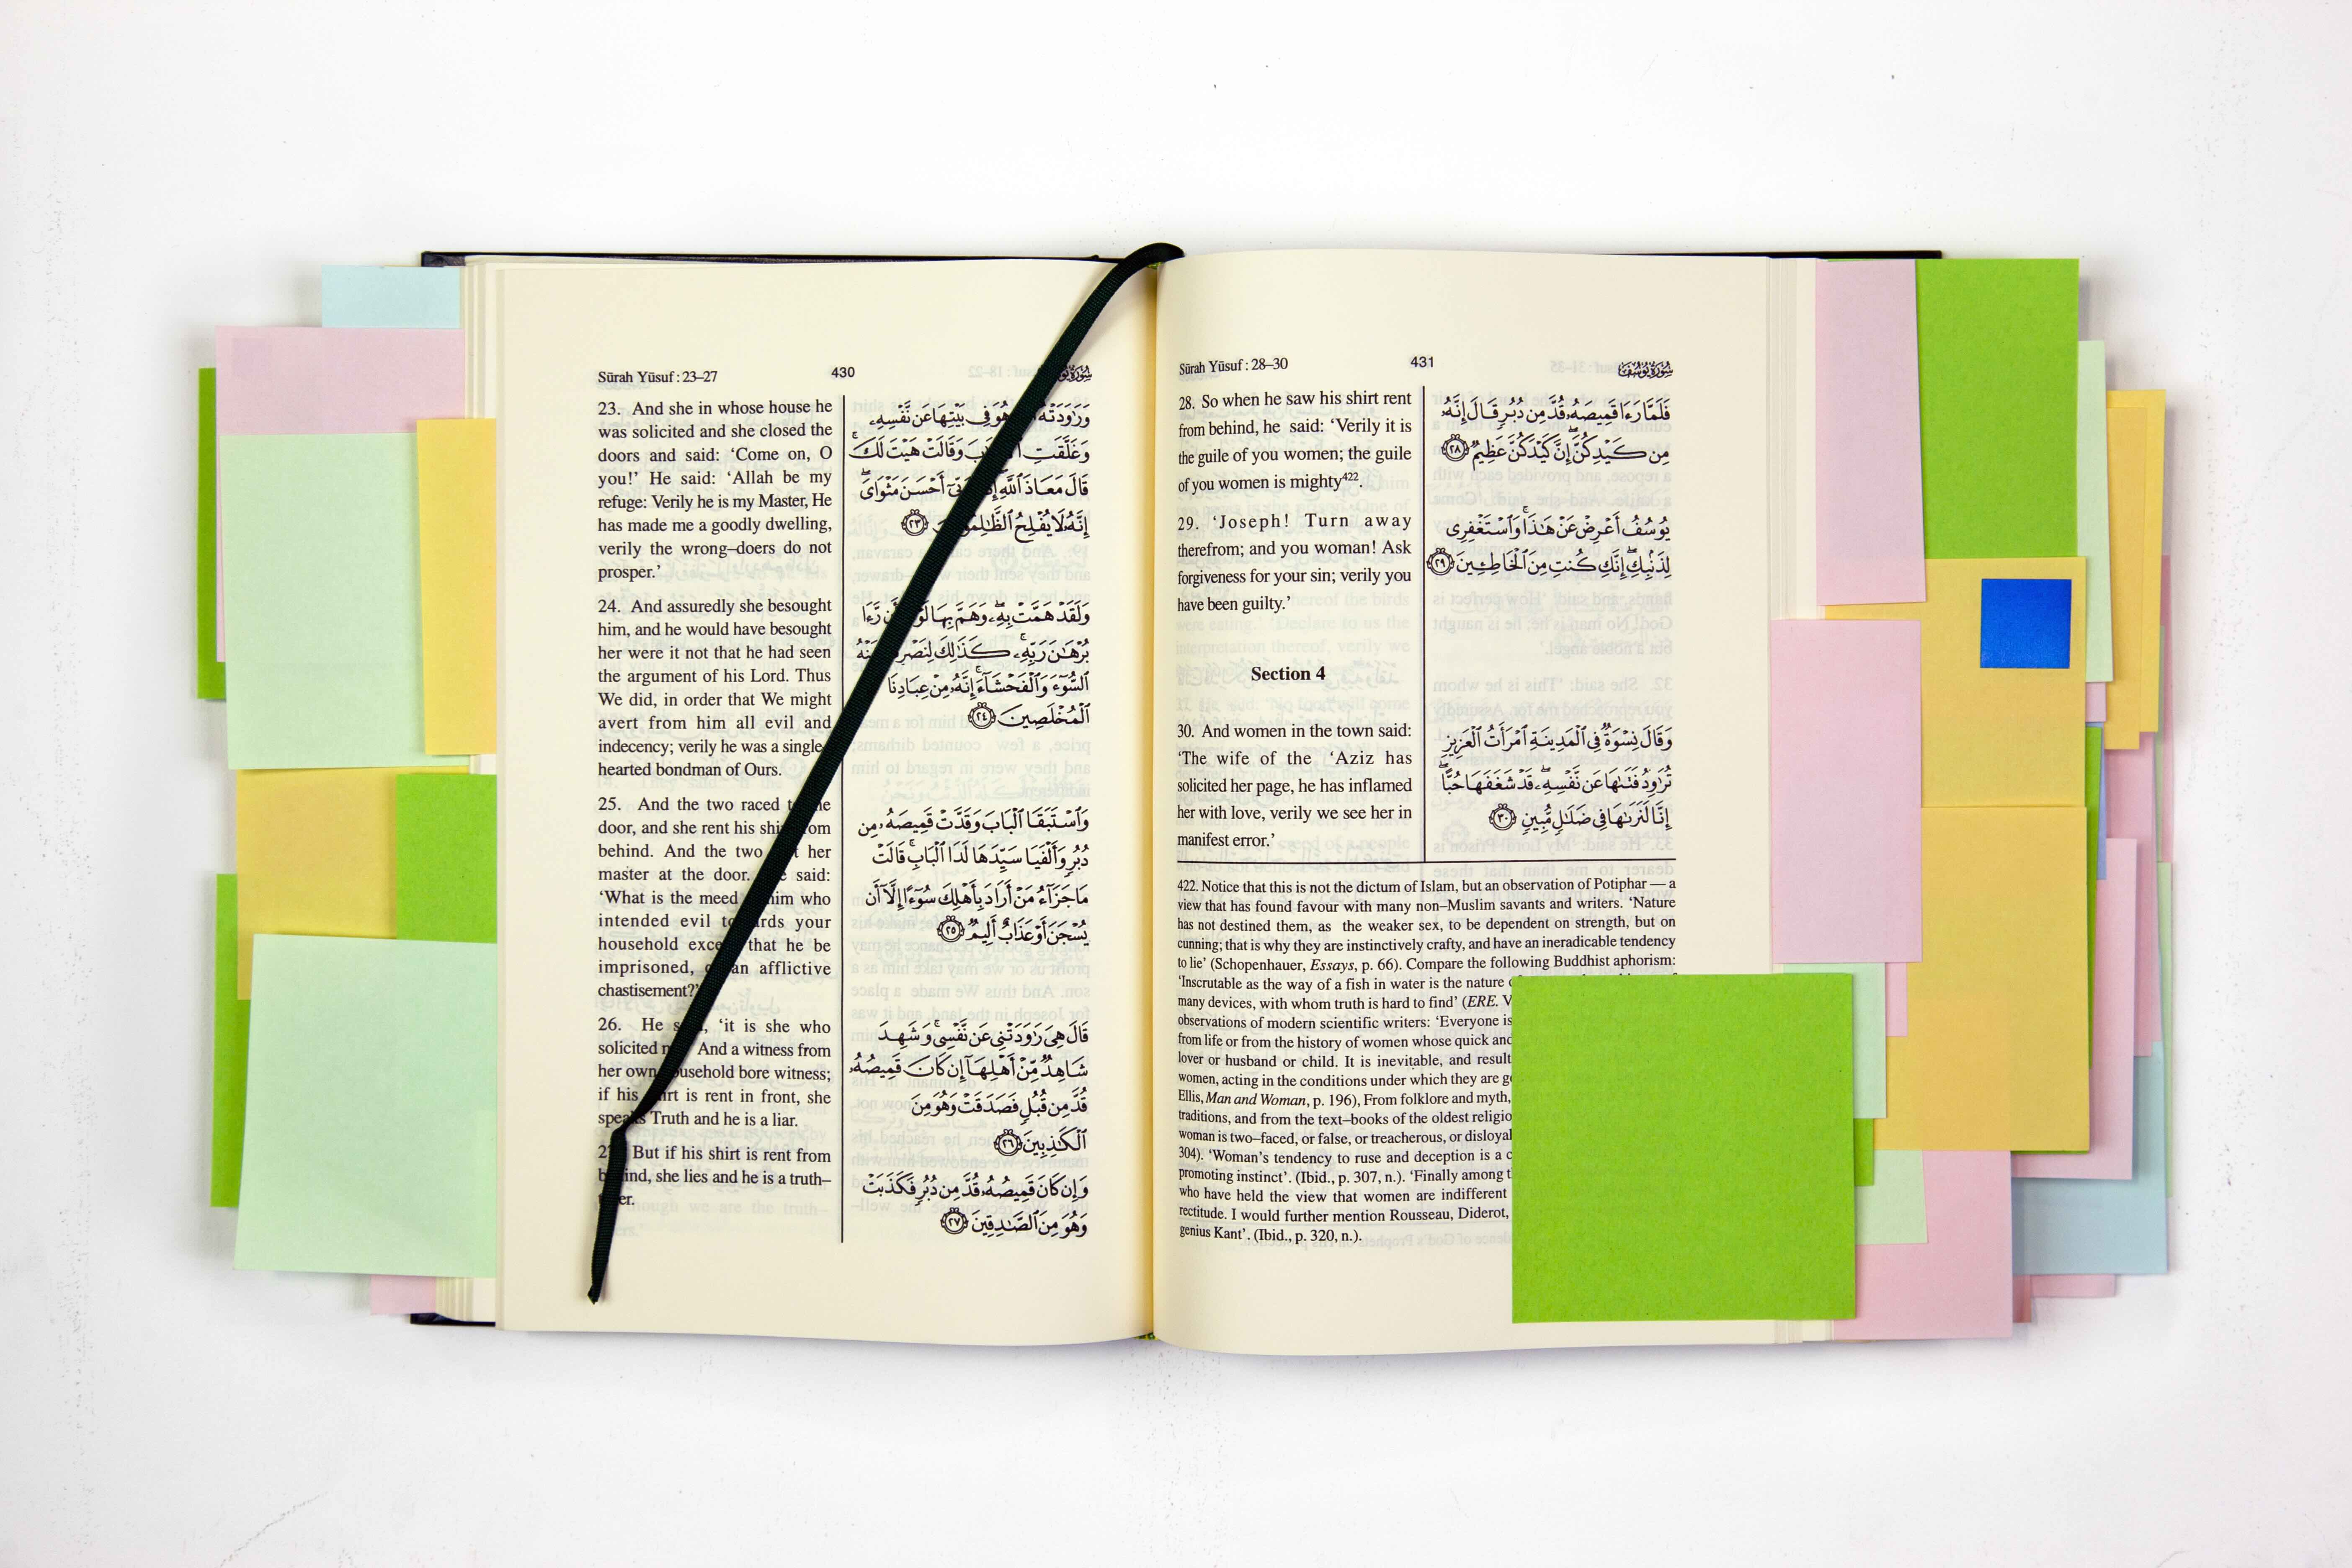 Sūrah Yūsuf : 23–27
430
23. And she in whose house he
was solicited and she closed the
doors and said: ‘Come on, O
you!’ He said: ‘Allah be my
refuge: Verily he is my Master, He
has made me a goodly dwelling,
verily the wrong–doers do not
prosper.’
24. And assuredly she besought
him, and he would have besought
her were it not that he had seen
the argument of his Lord. Thus
We did, in order that We might
avert from him all evil and
indecency; verily he was a single
hearted bondman of Ours.
25. And the two raced
door, and she rent his
behind. And the two her
master at the door. said:
‘What is the meed him who
intended evil your
household that he be
imprisoned, an afflictive
chastisement?’
26. He ‘it is she who
solicited And a witness from
her own bore witness;
if his is rent in front, she
Truth and he is a liar.
But if his shirt is rent from
she lies and he is a truth–
وَرَٰوَدَتْهُ هُوَ فِى بَيْتِهَا عَن نَّفْسِهِۦ
وَغَلَّقَتِ وَقَالَتْ هَيْتَ لَكَ ۚ
قَالَ مَعَاذَ ٱللَّهِ أَحْسَنَ مَثْوَاىَ ۖ
إِنَّهُۥ لَا يُفْلِحُ ٢٣
وَلَقَدْ هَمَّتْ بِهِۦ ۖ وَهَمَّ بِهَا أَن رَّءَا
بُرْهَـٰنَ رَبِّهِۦ ۚ كَذَٰلِكَ
ٱلسُّوٓءَ وَٱلْفَحْشَآءَ ۚ إِنَّهُۥ مِنْ عِبَادِنَا
ٱلْمُخْلَصِينَ ٢٤
وَٱسْتَبَقَا ٱلْبَابَ وَقَدَّتْ قَمِيصَهُۥ مِن
دُبُرٍ وَأَلْفَيَا سَيِّدَهَا لَدَا ٱلْبَابِ ۚ قَالَتْ
مَا جَزَآءُ مَنْ أَرَادَ بِأَهْلِكَ سُوٓءًا إِلَّآ أَن
يُسْجَنَ أَوْ عَذَابٌ أَلِيمٌ ٢٥
قَالَ هِىَ رَٰوَدَتْنِى عَن نَّفْسِى ۚ وَشَهِدَ
شَاهِدٌ مِّنْ أَهْلِهَآ إِن كَانَ قَمِيصُهُۥ
قُدَّ مِن قُبُلٍ فَصَدَقَتْ وَهُوَ مِنَ
ٱلْكَـٰذِبِينَ ٢٦
وَإِن كَانَ قَمِيصُهُۥ قُدَّ مِن دُبُرٍ فَكَذَبَتْ
وَهُوَ مِنَ ٱلصَّـٰدِقِينَ ٢٧
Sūrah Yūsuf : 28–30
431
سُورَةُ يُوسُف
28. So when he saw his shirt rent
from behind, he said: ‘Verily it is
the guile of you women; the guile
of you women is mighty⁴²².
29. ‘Joseph! Turn away
therefrom; and you woman! Ask
forgiveness for your sin; verily you
have been guilty.’
Section 4
30. And women in the town said:
‘The wife of the ‘Aziz has
solicited her page, he has inflamed
her with love, verily we see her in
manifest error.’
فَلَمَّا رَءَا قَمِيصَهُۥ قُدَّ مِن دُبُرٍ قَالَ إِنَّهُۥ
مِن كَيْدِكُنَّ ۖ إِنَّ كَيْدَكُنَّ عَظِيمٌ ٢٨
يُوسُفُ أَعْرِضْ عَنْ هَـٰذَا ۚ وَٱسْتَغْفِرِى
لِذَنۢبِكِ ۖ إِنَّكِ كُنتِ مِنَ ٱلْخَاطِـِٔينَ ٢٩
وَقَالَ نِسْوَةٌ فِى ٱلْمَدِينَةِ ٱمْرَأَتُ ٱلْعَزِيزِ
تُرَٰوِدُ فَتَىٰهَا عَن نَّفْسِهِۦ ۖ قَدْ شَغَفَهَا حُبًّا ۖ
إِنَّا لَنَرَىٰهَا فِى ضَلَـٰلٍ مُّبِينٍ ٣٠
422. Notice that this is not the dictum of Islam, but an observation of Potiphar — a
view that has found favour with many non–Muslim savants and writers. ‘Nature
has not destined them, as the weaker sex, to be dependent on strength, but on
cunning; that is why they are instinctively crafty, and have an ineradicable tendency
to lie’ (Schopenhauer, Essays, p. 66). Compare the following Buddhist aphorism:
‘Inscrutable as the way of a fish in water is the nature
many devices, with whom truth is hard to find’ (ERE.
observations of modern scientific writers: ‘Everyone is
from life or from the history of women whose quick
lover or husband or child. It is inevitable, and
women, acting in the conditions under which they are
Ellis, Man and Woman, p. 196), From folklore and myth,
traditions, and from the text–books of the oldest
woman is two–faced, or false, or treacherous, or
304). ‘Woman’s tendency to ruse and deception is a
promoting instinct’. (Ibid., p. 307, n.). ‘Finally among
who have held the view that women are indifferent
rectitude. I would further mention Rousseau, Diderot,
genius Kant’. (Ibid., p. 320, n.).